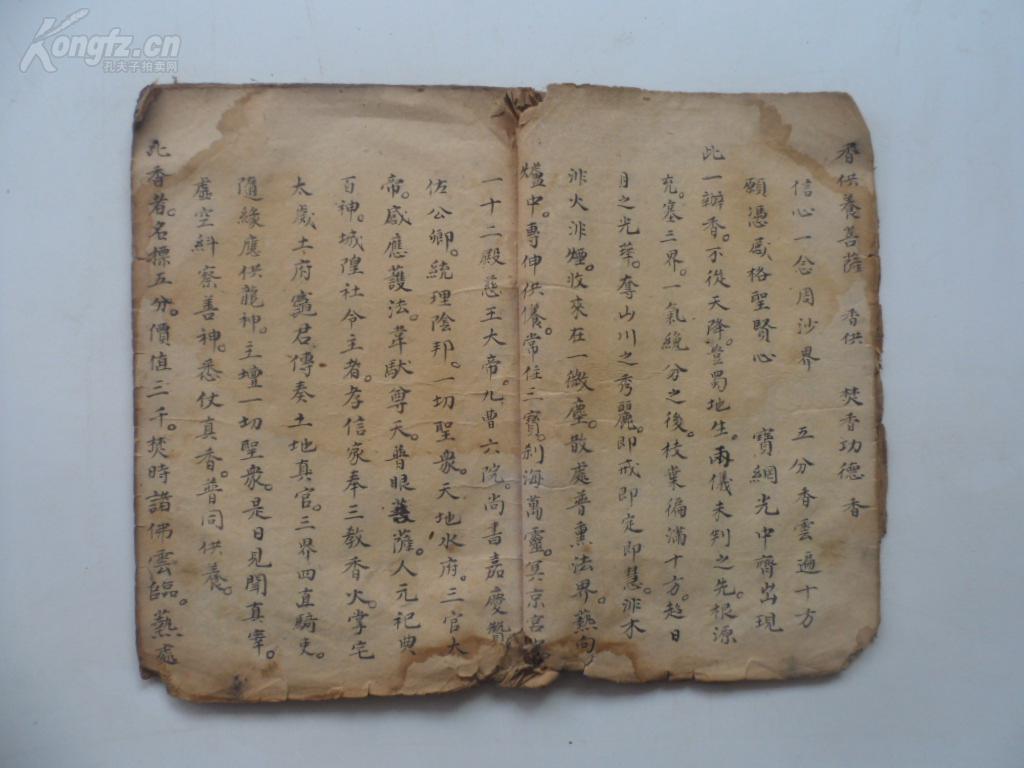 Kongfz.cn
孔夫子拍卖网
香供養菩薩 香供 焚香功德香
信心一念周沙界 五分香雲遍十方
願憑感格聖賢心 寶網光中齊出現
此一辦香。不從天降。豈屬地生。兩儀未判之先。根源
充塞三界。一氣纔分之後。枝葉徧滿十方。超日
月之光華。奪山川之秀麗。即戒即定即慧。非木
非火非煙。收來在一微塵。散處普熏法界。爇向
爐中。專伸供養。常住三寶。剎海萬靈。冥京宮
一十二殿慈王大帝。九曹六院尚書嘉慶
佐公卿。統理陰邦。一切聖衆。天地水府。三官大
帝。感應護法。韋馱尊天。普眼菩薩。人元祀典
百神。城隍社令主者。孝信家奉三教香火。掌宅
太歲土府竈君傳奏土地真官。三界四直騎吏。
隨緣應供龍神。主壇一切聖衆。是日見聞真宰。
虛空糾察善神。悉仗真香。普同供養。
此香者。名標五分。價值三千。焚時諸佛雲臨。爇處